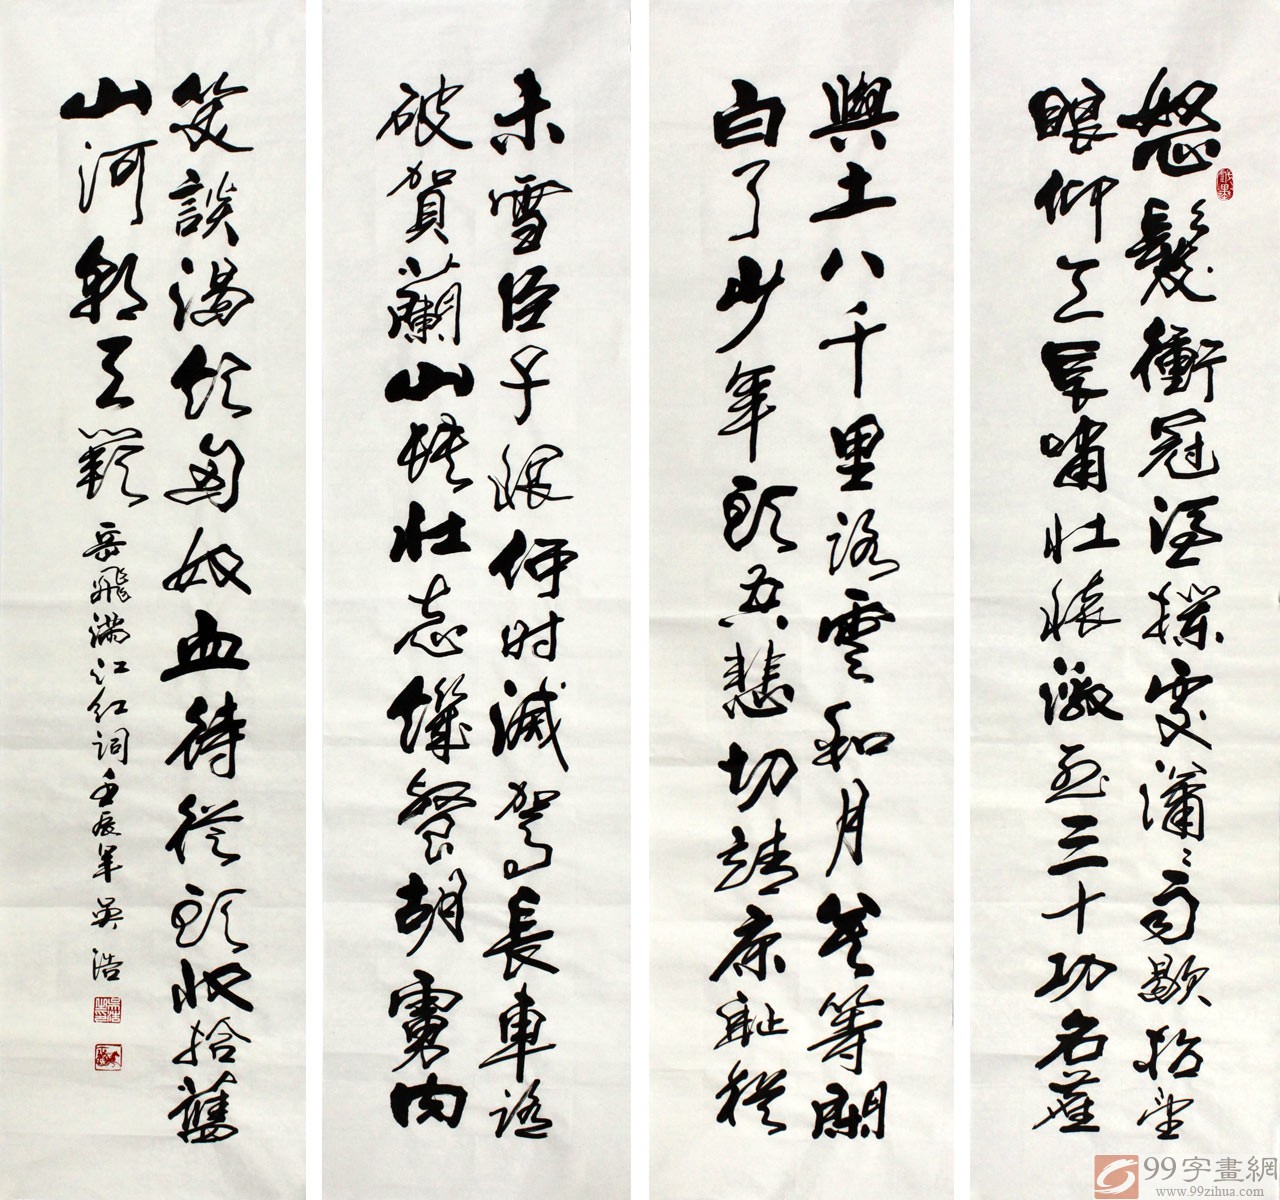 怒髮衝冠憑欄處瀟〻雨歇抬望
眼仰天長嘯壯懷激烈三十功名塵
與土八千里路雲和月莫等閑
白了少年頭空悲切靖康耻猶
未雪臣子恨何时滅駕長車踏
破賀蘭山缺壯志饑餐胡虜肉
笑談渴飲匈奴血待從頭收拾舊
山河朝天闕 岳飛滿江紅詞壬辰年吳浩
99字畫網
www.99zihua.com